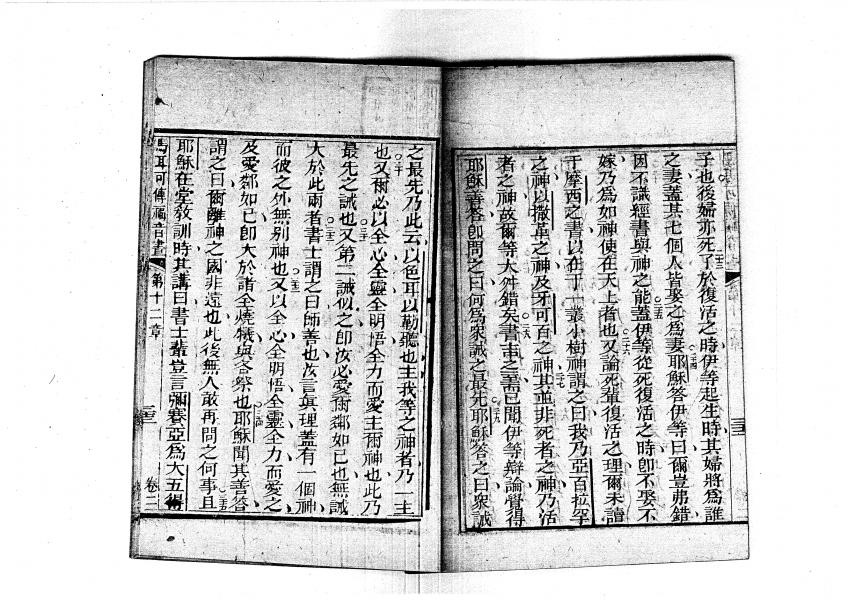 子也後婦亦死了於復活之時伊等起生時其婦將為誰
之妻蓋其七個人皆娶之為妻耶穌答伊等曰爾豈弗錯
因不識經書與神之能蓋伊等從死復活之時卽不娶不
嫁乃為如神使在天上者也又論死輩復活之理爾未讀
于摩西之書以在于一叢小樹神謂之曰我乃亞百拉罕
之神以撒革之神及牙可百之神其並非死者之神乃活
者之神故爾等大舛錯矣書士之一已聞伊等辯論覺得
耶穌善答卽問之曰何為衆誡之最先耶穌答之曰衆誡
之最先乃此云以色耳以勒聽也主我等之神者乃一主
也又爾必以全心全靈全明悟全力而愛主爾神也此乃
最先之誡也又第二誡似之卽汝必愛爾鄰如已也無誡
大於此兩者書士謂之曰師善也汝言眞理蓋有一個神
而彼之外無別神也又以全心全明悟全靈全力而愛之
及愛鄰如已卽大於諸全燒犧與各祭也耶穌聞其善答
謂之曰爾離神之國非遠也此後無人敢再問之何事且
耶穌在堂敎訓時其講曰書士輩豈言彌賽亞為大五得
馬耳可傳福音書 第十二章 三三 卷二